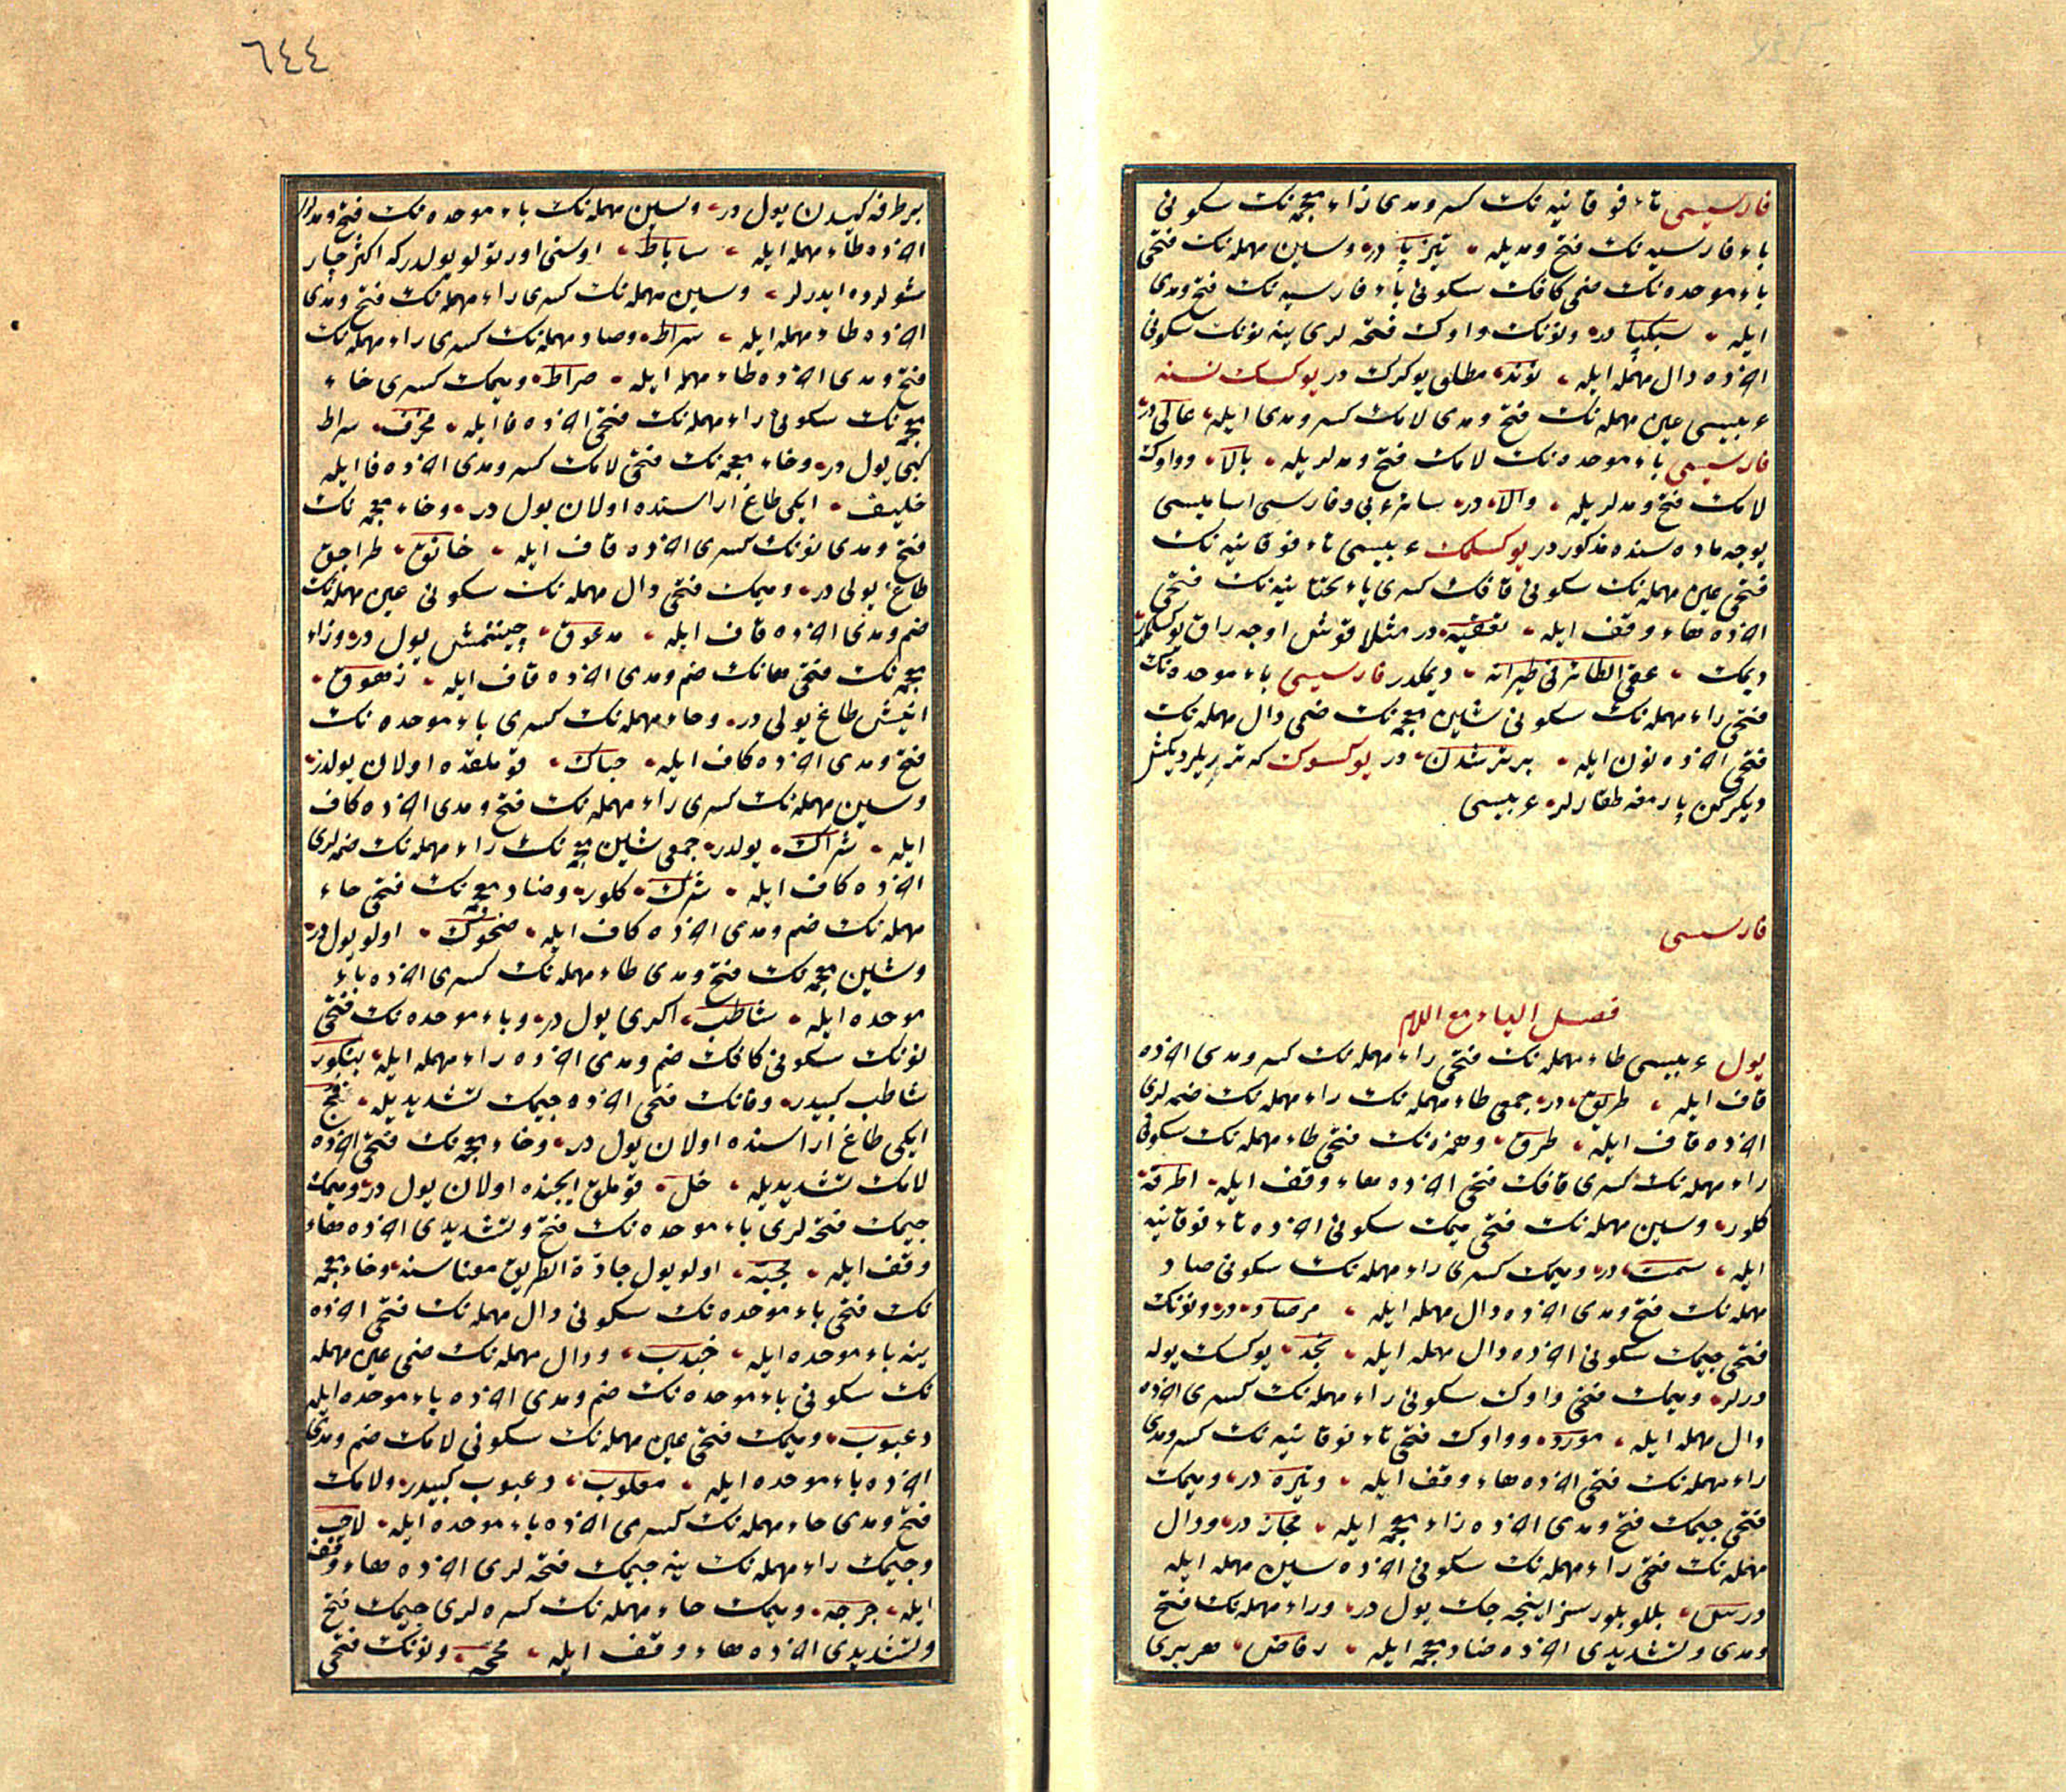 فارسیسی تاء فوقانیه نک کسر و مدی زاء معجمه نک سکونی
باء فارسیه نک فتح و مدیله تیزپا در و سین مهمله نک فتحی
باء موحده نک ضمی کافک سکونی باء فارسیه نک فتح و مدی
ایله سبکپا در و نونک واوک فتحه لری ینه نونک سکونی
آخرده دال مهمله ایله نوند مطلق یوکرک در یوکسک نسنه
عربیسی عین مهمله نک فتح و مدی لامک کسر و مدی ایله عالی در
فارسیسی باء موحده نک لامک فتح و مدلریله بالا و واوک
لامک فتح و مدلریله والا در سائر عربی و فارسی اسامیسی
یوجه ماده سنده مذکور در یوکسلمک عربیسی تاء فوقانیه نک
فتحی عین مهمله نک سکونی قافک کسری یاء تحتانیه نک فتحی
آخرده هاء وقف ایله تعقیه در مثلا قوش اوجه راق یوکسلمک
دیمک عقی الطائر فی طیرانه دیمکدر فارسیسی باء موحده نک
فتحی راء مهمله نک سکونی شین معجمه نک ضمی دال مهمله نک
فتحی آخرده نون ایله بر شدن در یوکسوک که ترزیلر دیکش
دیکرکن پارمغه طقارلر عربیسی
فارسیسی
فصل الیاء مع اللام
یول عربیسی طاء مهمله نک فتحی راء مهمله نک کسر و مدی آخرده
قاف ایله طریق در جمعی طاء مهمله نک راء مهمله نک ضمه لری
آخرده قاف ایله طرق و همزه نک فتحی طاء مهمله نک سکونی
راء مهمله نک کسری قافک فتحی آخرده هاء وقف ایله اطرقة
کلور و سین مهمله نک فتحی میمک سکونی آخرده تاء فوقانیه
ایله سمت در و میمک کسری راء مهمله نک سکونی صاد
مهمله نک فتح و مدی آخرده دال مهمله ایله مرصاد در و نونک
فتحی جیمک سکونی آخرده دال مهمله ایله نجد یوکسک یوله
درلر و میمک فتحی واوک سکونی راء مهمله نک کسری آخرده
دال مهمله ایله مورد و واوک فتحی تاء فوقانیه نک کسر و مدی
راء مهمله نک فتحی آخرده هاء وقف ایله وتیره در و میمک
فتحی جیمک فتح و مدی آخرده زاء معجمه ایله مجاز در و دال
مهمله نک فتحی راء مهمله نک سکونی آخرده سین مهمله ایله
درس بللو بلورسز اینجه جک یول در و راء مهمله نک فتح
و مدی و تشدیدی آخرده ضاد معجمه ایله رفاض هر بری
٦٤٤
بر طرفه کیدن یول در و سین مهمله نک باء موحده نک فتح و مدلری
آخرده طاء مهمله ایله ساباط اوستی اورتولو یولدر که اکثر
ایدرلر و سین مهمله نک کسری راء مهمله نک فتح و مدی
آخرده طاء مهمله ایله سراط و صاد مهمله نک کسری راء مهمله نک
فتح و مدی آخرده طاء مهمله ایله صراط و میمک کسری خاء
معجمه نک سکونی راء مهمله نک فتحی آخرده فا ایله مخرف سراط
کبی یول در و خاء معجمه نک فتحی لامک کسر و مدی آخرده فا ایله
خلیف ایکی طاغ اراسنده اولان یول در و خاء معجمه نک
فتح و مدی نونک کسری آخرده قاف ایله خانق طراجق
طاغ یولی در و میمک فتحی دال مهمله نک سکونی عین مهمله نک
ضم و مدی آخرده قاف ایله مدعوق چیننمش یول در و زاء
معجمه نک فتحی هانک ضم و مدی آخرده قاف ایله زهوق
انیش طاغ یولی در و حاء مهمله نک کسری باء موحده نک
فتح و مدی آخرده کاف ایله حباک قوملقده اولان یولدر
و سین مهمله نک کسری راء مهمله نک فتح و مدی آخرده کاف
ایله شراک یولدر جمعی شین معجمه نک راء مهمله نک ضمه لری
آخرده کاف ایله شرک کلور و ضاد معجمه نک فتحی حاء
مهمله نک ضم و مدی آخرده کاف ایله ضحوک اولو یول در
و شین معجمه نک فتح و مدی طاء مهمله نک کسری آخرده باء
موحده ایله شاطب اکری یول در و باء موحده نک فتحی
نونک سکونی کافک ضم و مدی آخرده راء مهمله ایله بنکور
شاطب کبیدر و فانک فتحی آخرده جیمک تشدیدیله فج
ایکی طاغ اراسنده اولان یول در و خاء معجمه نک فتحی آخرده
لامک تشدیدیله خل قوملق ایچنده اولان یول در و میمک
جیمک فتحه لری باء موحده نک فتح و تشدیدی آخرده هاء
وقف ایله مجبه اولو یول جادّة الطریق معناسنه و خاء معجمه
نک فتحی باء موحده نک سکونی دال مهمله نک فتحی آخرده
ینه باء موحده ایله خبدب و دال مهمله نک ضمی عین مهمله
نک سکونی باء موحده نک ضم و مدی آخرده باء موحده ایله
دعبوب و میمک فتحی عین مهمله نک سکونی لامک ضم و مدی
آخرده باء موحده ایله معلوب دعبوب کبیدر و لامک
فتح و مدی حاء مهمله نک کسری آخرده باء موحده ایله لاحب
و جیمک راء مهمله نک ینه جیمک فتحه لری آخرده هاء وقف
ایله جرجه و میمک حاء مهمله نک کسره لری جیمک فتح
و تشدیدی آخرده هاء وقف ایله محجه و نونک فتحی